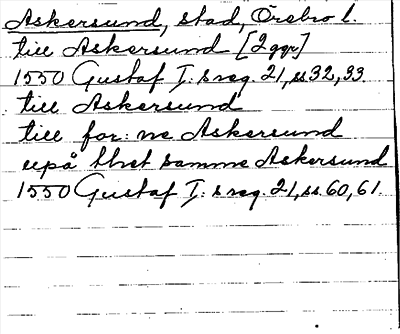 Askersund, stad, Örebro l.
till Askersund [2 ggr]
1550 Gustaf I:s reg. 21, ss 32, 33.
till Askersund
till for:ne Askersund
upå thet samme Askersund
1550 Gustaf I:s reg. 21, ss. 60, 61.